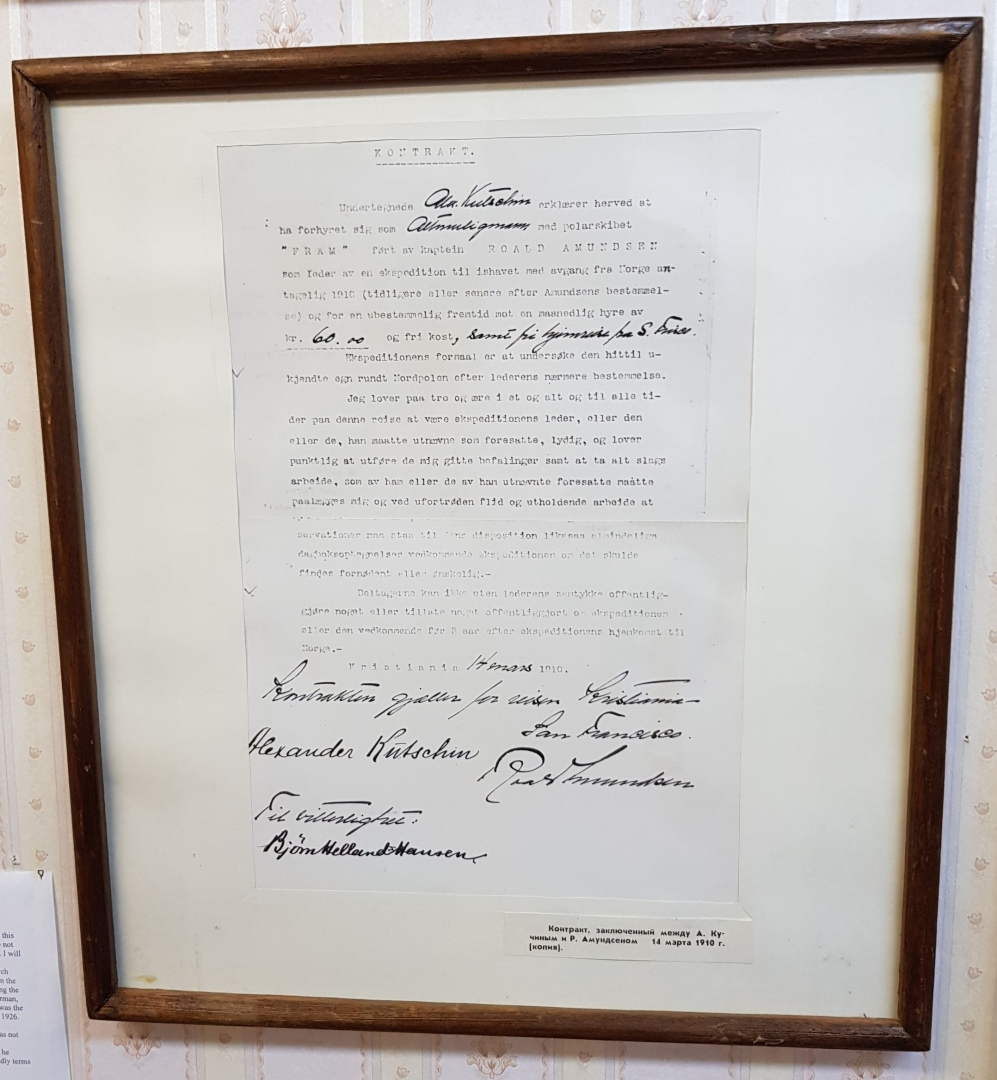 KONTRAKT.
Undertegnede Alex. Kutschin erklærer herved at
ha forhyret sig som Altmuligmann med polarskibet
"FRAM" ført av kaptein ROALD AMUNDSEN
som leder av en ekspedition til ishavet med avgang fra Norge an-
tagelig 1910 (tidligere eller senere efter Amundsens bestemmel-
se) og for en ubestemmelig fremtid mot en maanedlig hyre av
kr. 60.00 og fri kost, samt fri hjemreise fra S. Frisco.
Ekspeditionens formaal er at undersøke den hittil u-
kjendte egn rundt Nordpolen efter lederens nærmere bestemmelse.
Jeg lover paa tro og ære i et og alt og til alle ti-
der paa denne reise at være ekspeditionens leder, eller den
eller de, han maatte utnævne som foresatte, lydig, og lover
punktlig at utføre de mig gitte befalinger samt at ta alt slags
arbeide, som av ham eller de av ham utnævnte foresatte maatte
paalægges mig og ved ufortrøden flid og utholdende arbeide at
servationer maa staa til hans disposition likesaa almindelige
dagboksoptegnelser vedkommende ekspeditionen om det skulde
findes fornødent eller ønskelig.-
Deltagerne kan ikke uten lederens samtykke offentlig-
gjøre noget eller tillate noget offentliggjort om ekspeditionen
eller den vedkommende før 3 aar efter ekspeditionens hjemkomst til
Norge.-
Kristiania 14 mars 1910.
Kontrakten gjælder for reisen Kristiania-
San Francisco.
Alexander Kutschin
Roald Amundsen
Til vitterlighet:
Bjørn Helland-Hansen
Контракт, заключенный между А. Ку-
чиным и Р. Амундсеном 14 марта 1910 г.
(копия).
this
not
I will
the
ng the
rman,
was the
1926.
as not
he
dly terms